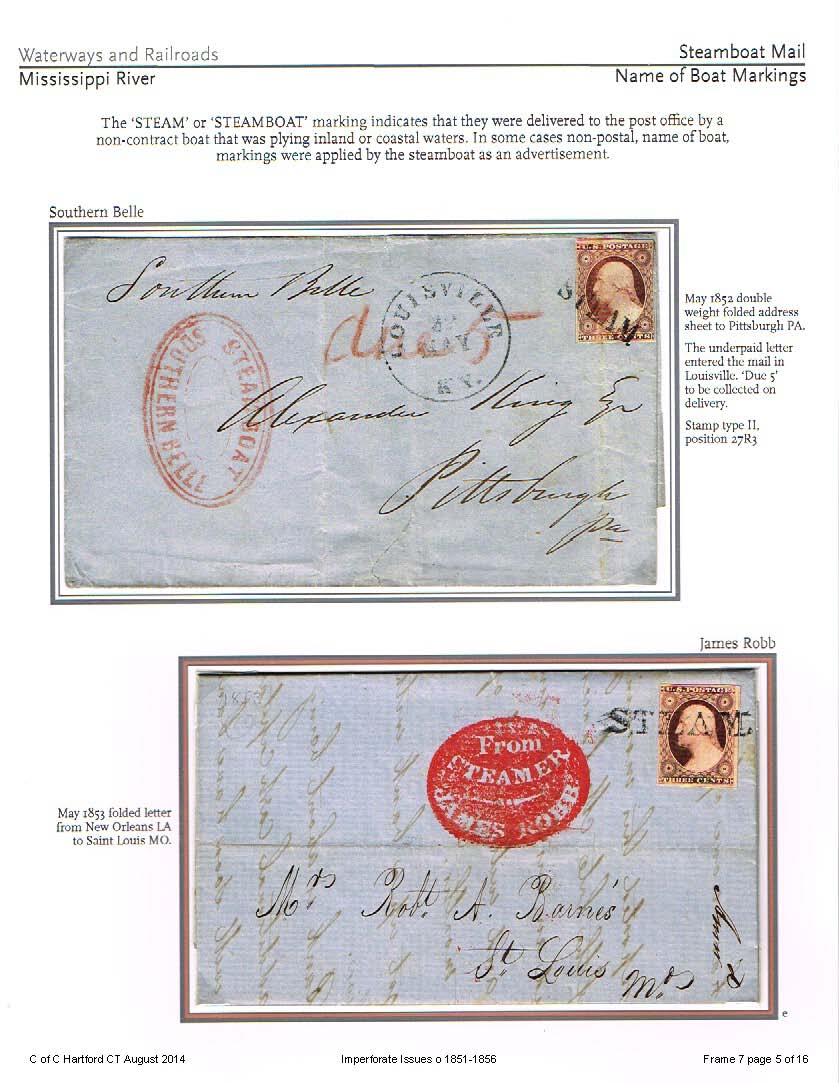 Waterways and Railroads
Steamboat Mail
Mississippi River
Name of Boat Markings
The ‘STEAM’ or ‘STEAMBOAT’ marking indicates that they were delivered to the post office by a
non-contract boat that was plying inland or coastal waters. In some cases non-postal, name of boat,
markings were applied by the steamboat as an advertisement.
Southern Belle
Southern Belle
U.S. POSTAGE
THREE CENTS
STEAM
LOUISVILLE
MAY
KY.
Due 5
STEAMBOAT
SOUTHERN BELLE
Alexander King Esqr
Pittsburgh
Pa
May 1852 double
weight folded address
sheet to Pittsburgh PA.
The underpaid letter
entered the mail in
Louisville. ‘Due 5’
to be collected on
delivery.
Stamp type II,
position 27R3
James Robb
1853
U.S. POSTAGE
THREE CENTS
STEAM.
From
STEAMER
JAMES ROBB
May 1853 folded letter
from New Orleans LA
to Saint Louis MO.
Mrs Robt. A. Barnes
St. Louis
Mos
e
C of C Hartford CT August 2014
Imperforate Issues o 1851-1856
Frame 7 page 5 of 16